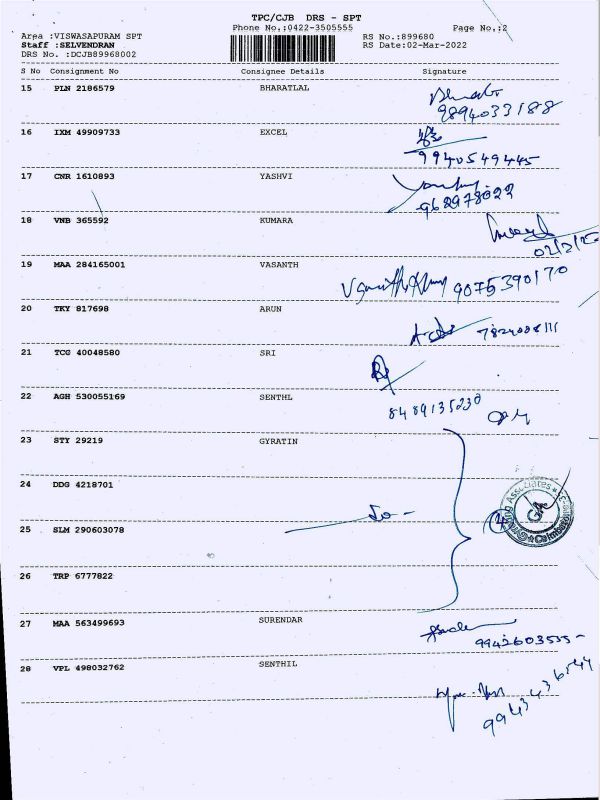 TPC/CJB DRS - SPT
Phone No.:0422-3505555
Page No.:2
Area :VISWASAPURAM SPT
RS No.:899680
Staff :SELVENDRAN
RS Date:02-Mar-2022
DRS No. :DCJB89968002
S No Consignment No Consignee Details Signature
15 PLN 2186579 BHARATLAL
9894033188
16 IXM 49909733 EXCEL
9940549445
17 CNR 1610893 YASHVI
18 VNB 365592 KUMARA
19 MAA 284165001 VASANTH
9075390170
20 TKY 817698 ARUN
21 TCG 40048580 SRI
22 AGH 530055169 SENTHL
8489135230
23 STY 29219 GYRATIN
24 DDG 4218701
Associates
Coimbatore
25 SLM 290603078
26 TRP 6777822
27 MAA 563499693 SURENDAR
9942603535
28 VPL 498032762 SENTHIL